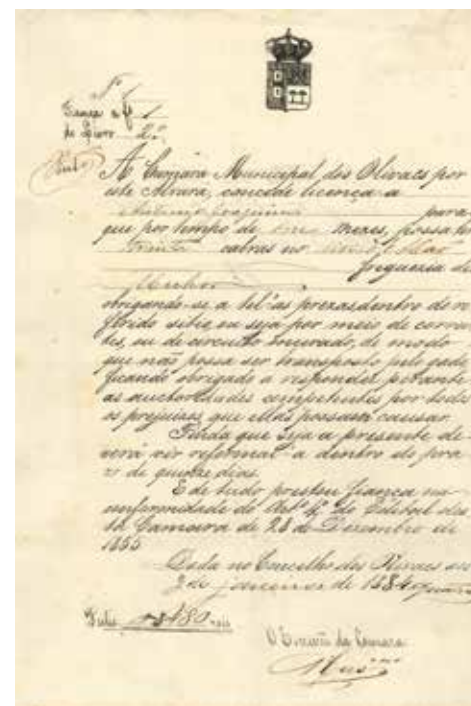 Nº 1
Fiança a fl 1
do Livro 2º
A Camara Municipal dos Olivaes por
este Alvará, concede licença a
Antonio Joaquim para
que por tempo de mezes, possa ter
trinta cabras no
freguezia de
obrigando-se a tel-as prezas dentro do re
ferido sitio, ou seja por meio de corren
tes, ou de circuito murado, de modo
que não possa ser transposto pelo gado
ficando obrigado a responder perante
as auctoridades competentes por todos
os prejuizos, que ellas possam causar
Finda que seja a presente de-
verá vir reformal-a dentro do pra-
zo de quinze dias.
E de tudo prestou fiança na
conformidade do Artº 4º do Edital des
ta Camara de 28 de Dezembro de
1855
Dada no Concelho dos Olivaes aos
2 de janeiro de 1884
480 reis
O Escrivão da Camara